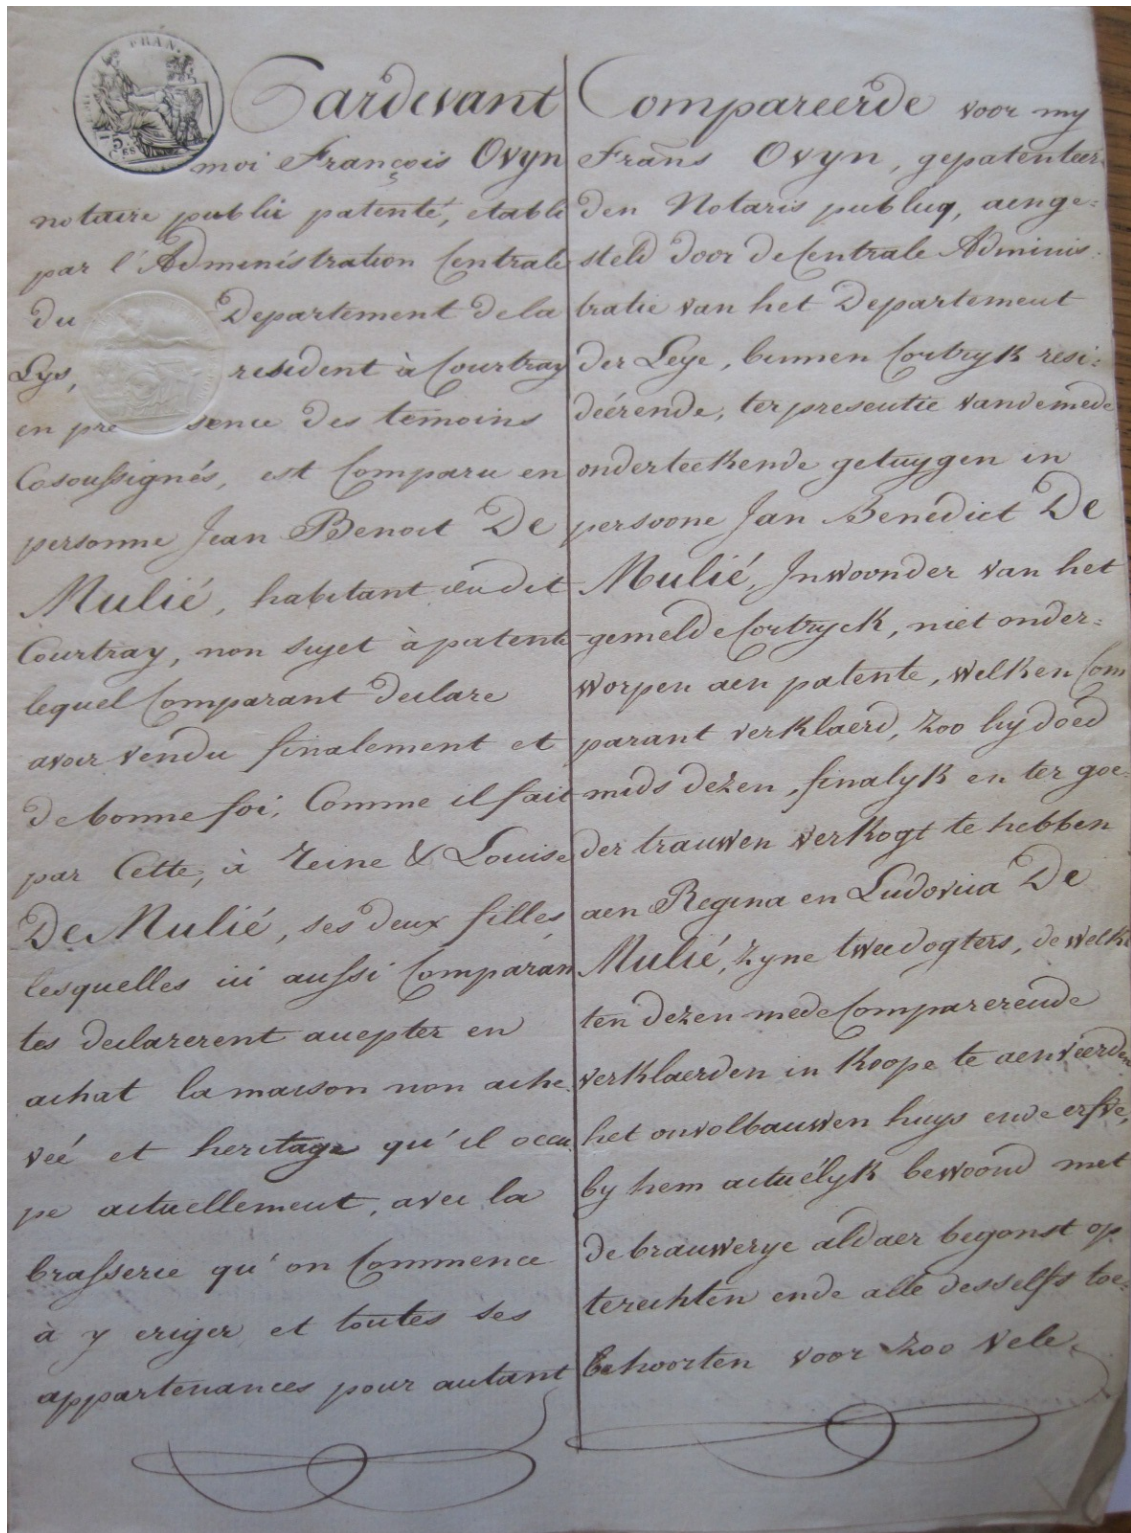 FRAN.
Pardevant
moi François Ovyn
notaire public patenté, etabli
par l'Administration Centrale
du Departement de la
Lys, resident à Courtray
en presence des temoins
Cosoussignés, est Comparu en
personne Jean Benoit De
Mulié, habitant dudit
Courtray, non sujet à patente
lequel Comparant declare
avoir vendu finalement et
de bonne foi, Comme il fait
par Cette, à Reine & Louise
De Mulié, ses deux filles,
lesquelles ici aussi Comparan
tes declarerent accepter en
achat la maison non ache.
veé et heritage qu'il occu.
pe actuellement, avec la
brasserie qu'on Commence
à y eriger et toutes ses
appartenances pour autant
Compareerde voor my
Frans Ovyn, gepatenteer=
den Notaris publicq, aenge=
steld door de Centrale Adminis=
tratie van het Departement
der Leye, binnen Cortryk resi=
deérende, ter presentie vande mede
onderteekende getuygen in
persoone Jan Benedict De
Mulié, Inwoonder van het
gemelde Cortryck, niet onder=
worpen aen patente, welken Com
parant verklaerd, zoo hy doed
mids dezen, finalyk en ter goe=
der trauwen verkogt te hebben
aen Regina en Ludovica De
Mulié, zyne twee dogters, de welke
ten dezen mede Comparerende
verklaerden in koope te aenveerden
het onvolbauwen huys ende erfve,
by hem actuélyk bewoond met
de brauwerye aldaer begonst op
terechten ende alle desselfs toe=
behoorten voor zoo vele